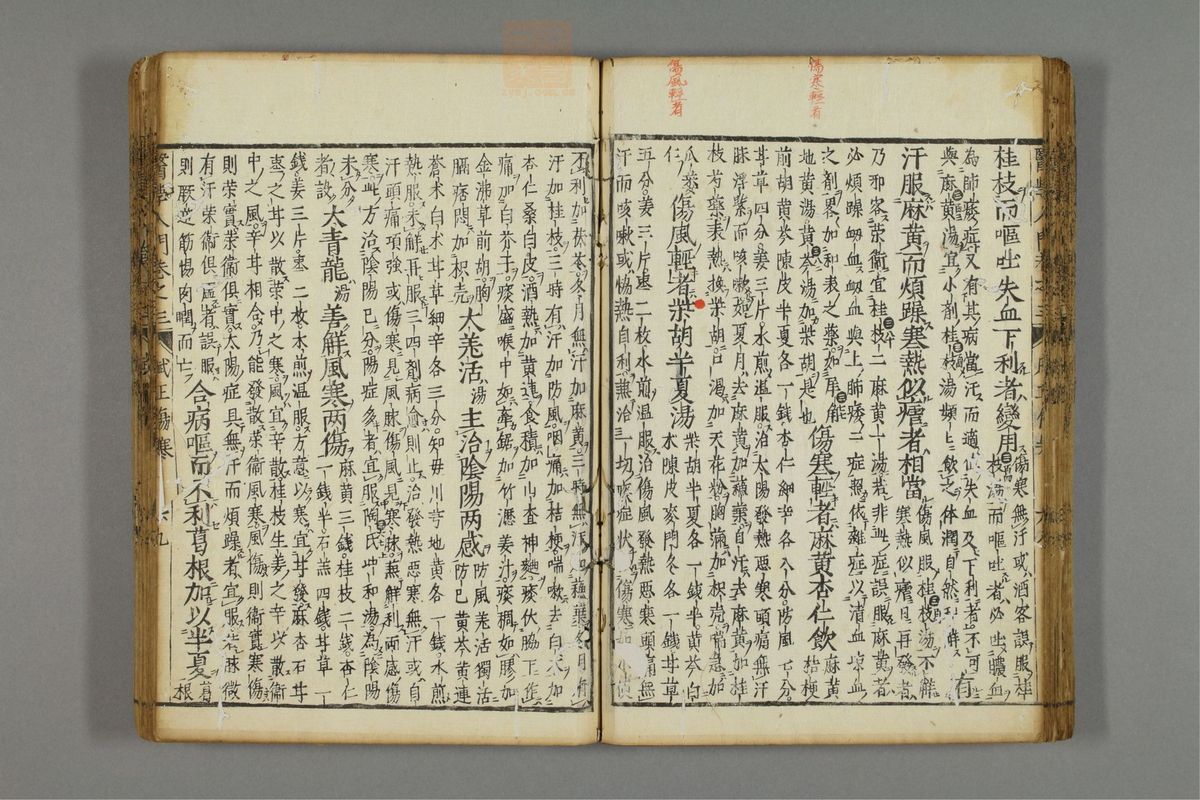 傷寒輕者
傷風輕者
桂枝而嘔吐失血下利者變用傷寒無汗或酒客誤服桂枝湯而嘔吐者必吐膿血
為肺痿症又有其病當汗而適失血及下利者不可
與麻黃湯宜小劑桂枝湯頻上飲之體潤自然有
汗服麻黃而煩躁寒熱似瘧者相當傷風服桂枝湯不解寒熱似瘧日再發者
乃邪客榮衛宜桂枝二麻黃一湯若非血症誤服麻黃者
必煩躁衂血衂血與上肺痿二症照依雜症以清血凉血
之劑畧加和表之藥如犀角
地黃湯黃芩湯加柴胡是也傷寒輕者麻黃杏仁飲麻黃桔梗
前胡黃芩陳皮半夏各一錢杏仁細辛各八分防風七分
甘草四分姜三片水煎溫服治太陽發熱惡寒頭痛無汗
脉浮緊而咳嗽如夏月去麻黃加蘇葉自汗去麻黃加桂
枝芍藥表熱換柴胡口渴加天花粉胸滿加枳壳喘急加
瓜蔞仁傷風輕者柴胡半夏湯柴胡半夏各一錢半黃芩白
水陳皮麥門冬各一錢甘草
五分姜三片棗二枚水煎溫服治傷風發熱惡寒頭痛無
汗而咳嗽或恊熱自利兼治一切痰症伏
不利加茯苓冬月無汗加麻黃三時無汗加蘇葉冬月有
汗加桂枝三時有汗加防風咽痛加桔梗喘嗽去白朮加
杏仁桑白皮酒熱加黃連食積加山查神麯痰伏脇下作
痛加白芥子痰盛喉中如牽鋸加竹瀝姜汁痰稠如膠加
金沸草前胡胸
膈痞悶加枳壳大羌活湯主治陰陽两感防風羌活獨活
防已黃芩黃連
蒼朮白朮甘草細辛各三分知母川芎地黃各一錢水煎
熱服未解再服三四劑病愈則止治發熱惡寒無汗或自
汗頭痛項強或傷寒見風脉傷風見寒脉無解利两感傷
寒此方治陰陽已分陽症多者宜服陶氏冲和湯為陰陽
未分
者設大青龍湯善解風寒两傷麻黃三錢桂枝二錢杏仁
一錢半石羔四錢甘草一
錢姜三片棗二枚水煎温服方意以寒宜甘發麻杏石甘
棗之甘以散榮中之寒風宜辛散桂枝生姜之辛以散衛
中之風辛甘相合乃能發散榮衛風寒風傷則衛實寒傷
則榮實榮衛俱實太陽症具無汗而煩躁者宜服若脉微
有汗榮衛俱虛者誤服
則厥逆筋惕肉瞤而亡合病嘔而不利葛根加以半夏葛根